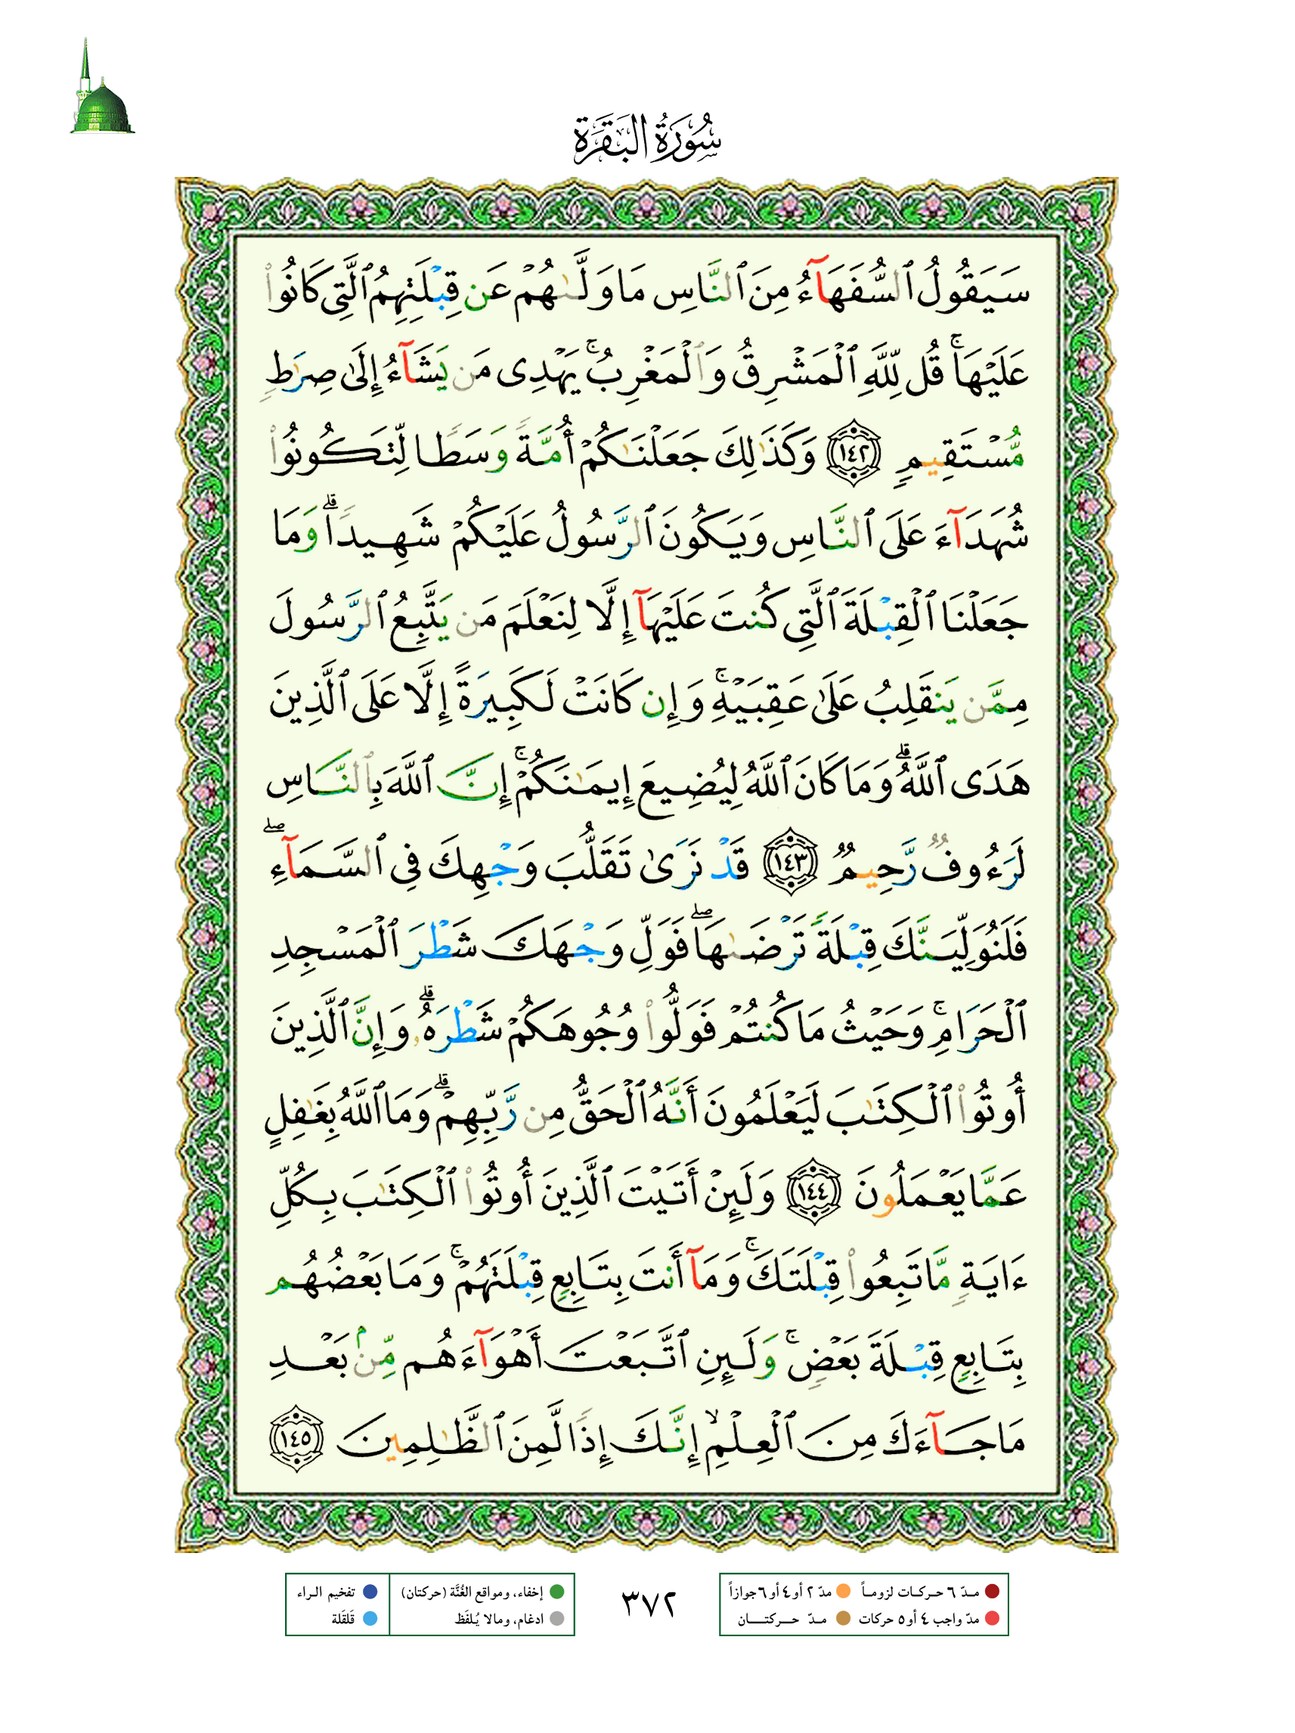 سُورَةُ البَقَرَة
سَيَقُولُ ٱلسُّفَهَآءُ مِنَ ٱلنَّاسِ مَا وَلَّىٰهُمْ عَن قِبْلَتِهِمُ ٱلَّتِى كَانُوا۟
عَلَيْهَا ۚ قُل لِّلَّهِ ٱلْمَشْرِقُ وَٱلْمَغْرِبُ ۚ يَهْدِى مَن يَشَآءُ إِلَىٰ صِرَٰطٍ
مُّسْتَقِيمٍ ١٤٢ وَكَذَٰلِكَ جَعَلْنَٰكُمْ أُمَّةً وَسَطًا لِّتَكُونُوا۟
شُهَدَآءَ عَلَى ٱلنَّاسِ وَيَكُونَ ٱلرَّسُولُ عَلَيْكُمْ شَهِيدًا ۗ وَمَا
جَعَلْنَا ٱلْقِبْلَةَ ٱلَّتِى كُنتَ عَلَيْهَآ إِلَّا لِنَعْلَمَ مَن يَتَّبِعُ ٱلرَّسُولَ
مِمَّن يَنقَلِبُ عَلَىٰ عَقِبَيْهِ ۚ وَإِن كَانَتْ لَكَبِيرَةً إِلَّا عَلَى ٱلَّذِينَ
هَدَى ٱللَّهُ ۗ وَمَا كَانَ ٱللَّهُ لِيُضِيعَ إِيمَٰنَكُمْ ۚ إِنَّ ٱللَّهَ بِٱلنَّاسِ
لَرَءُوفٌ رَّحِيمٌ ١٤٣ قَدْ نَرَىٰ تَقَلُّبَ وَجْهِكَ فِى ٱلسَّمَآءِ ۖ
فَلَنُوَلِّيَنَّكَ قِبْلَةً تَرْضَىٰهَا ۖ فَوَلِّ وَجْهَكَ شَطْرَ ٱلْمَسْجِدِ
ٱلْحَرَامِ ۚ وَحَيْثُ مَا كُنتُمْ فَوَلُّوا۟ وُجُوهَكُمْ شَطْرَهُۥ ۗ وَإِنَّ ٱلَّذِينَ
أُوتُوا۟ ٱلْكِتَٰبَ لَيَعْلَمُونَ أَنَّهُ ٱلْحَقُّ مِن رَّبِّهِمْ ۗ وَمَا ٱللَّهُ بِغَٰفِلٍ
عَمَّا يَعْمَلُونَ ١٤٤ وَلَئِنْ أَتَيْتَ ٱلَّذِينَ أُوتُوا۟ ٱلْكِتَٰبَ بِكُلِّ
ءَايَةٍ مَّا تَبِعُوا۟ قِبْلَتَكَ ۚ وَمَآ أَنتَ بِتَابِعٍ قِبْلَتَهُمْ ۚ وَمَا بَعْضُهُم
بِتَابِعٍ قِبْلَةَ بَعْضٍ ۚ وَلَئِنِ ٱتَّبَعْتَ أَهْوَآءَهُم مِّنۢ بَعْدِ
مَا جَآءَكَ مِنَ ٱلْعِلْمِ ۙ إِنَّكَ إِذًا لَّمِنَ ٱلظَّٰلِمِينَ ١٤٥
مدّ ٦ حركات لزوماً مدّ ٢ أو ٤ أو ٦ جوازاً
مدّ واجب ٤ أو ٥ حركات مدّ حركتان
٣٧٢
إخفاء، ومواقع الغُنَّة (حركتان) تفخيم الراء
ادغام، ومالا يُلفَظ قَلقَلة